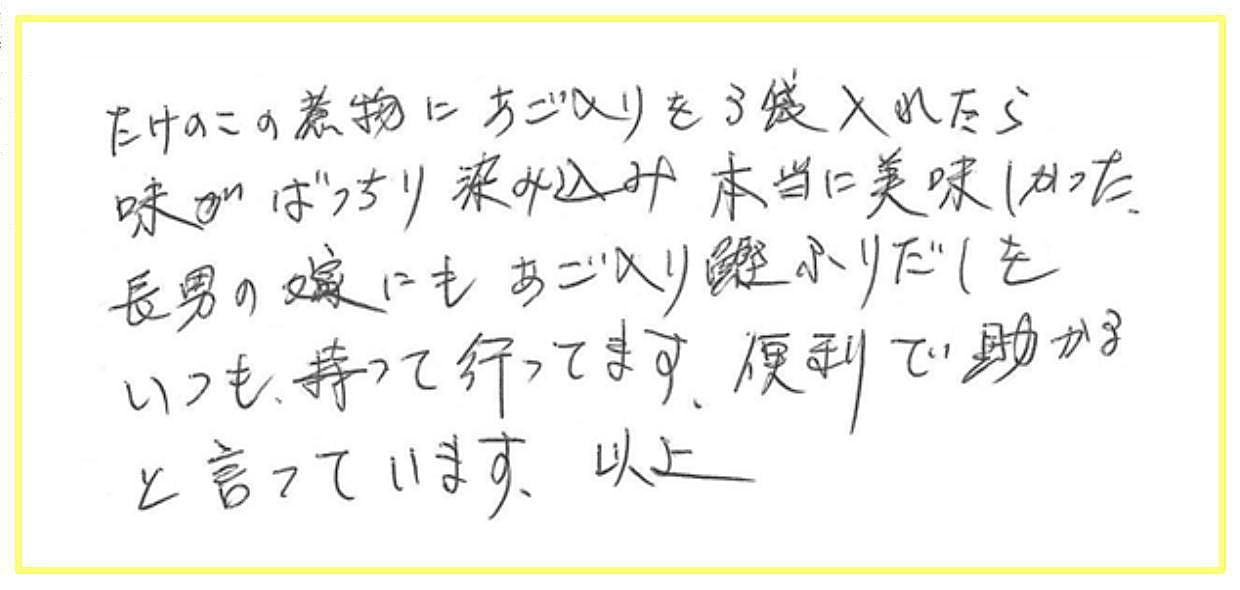 たけのこの煮物にあご入りを3袋入れたら
味がばっちり染み込み本当に美味しかった。
長男の嫁にもあご入り鰹ふりだしを
いつも、持って行ってます。便利で助かる
と言っています。以上